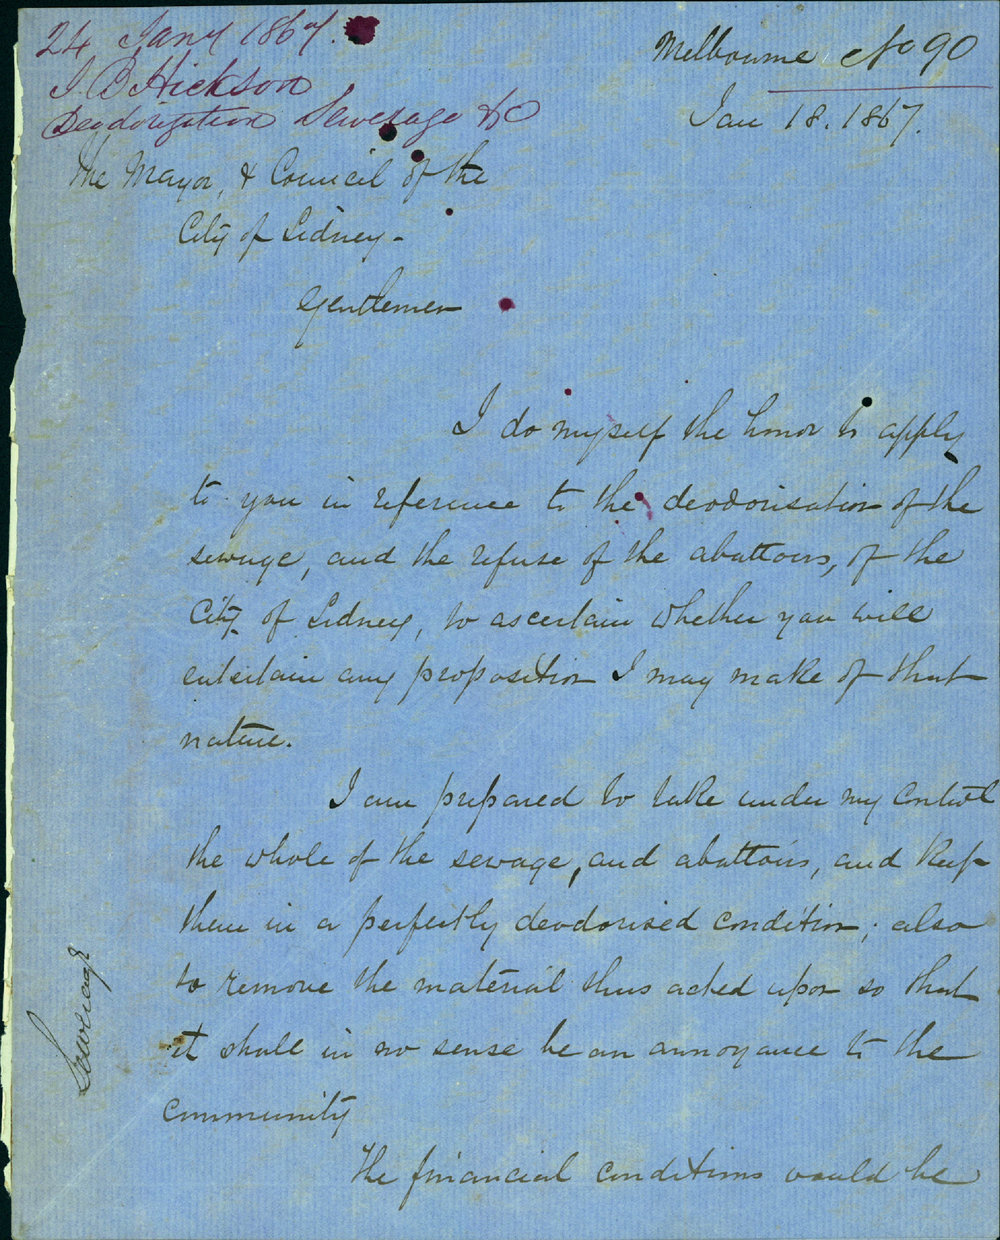 24 Jany 1867.
J. B. Hickson
Deodorization Sewerage &c
Melbourne No 90
Jan 18. 1867.
The Mayor, & Council of the
City of Sidney -
Gentlemen
I do myself the honor to apply
to you in reference to the deodorisation of the
sewage, and the refuse of the abattoirs, of the
City of Sidney, to ascertain whether you will
entertain any proposition I may make of that
nature.
I am prepared to take under my control
the whole of the sewage, and abattoirs, and keep
them in a perfectly deodorised condition; also
to remove the material thus acted upon so that
it shall in no sense be an annoyance to the
community
The financial conditions would be
Sewerage